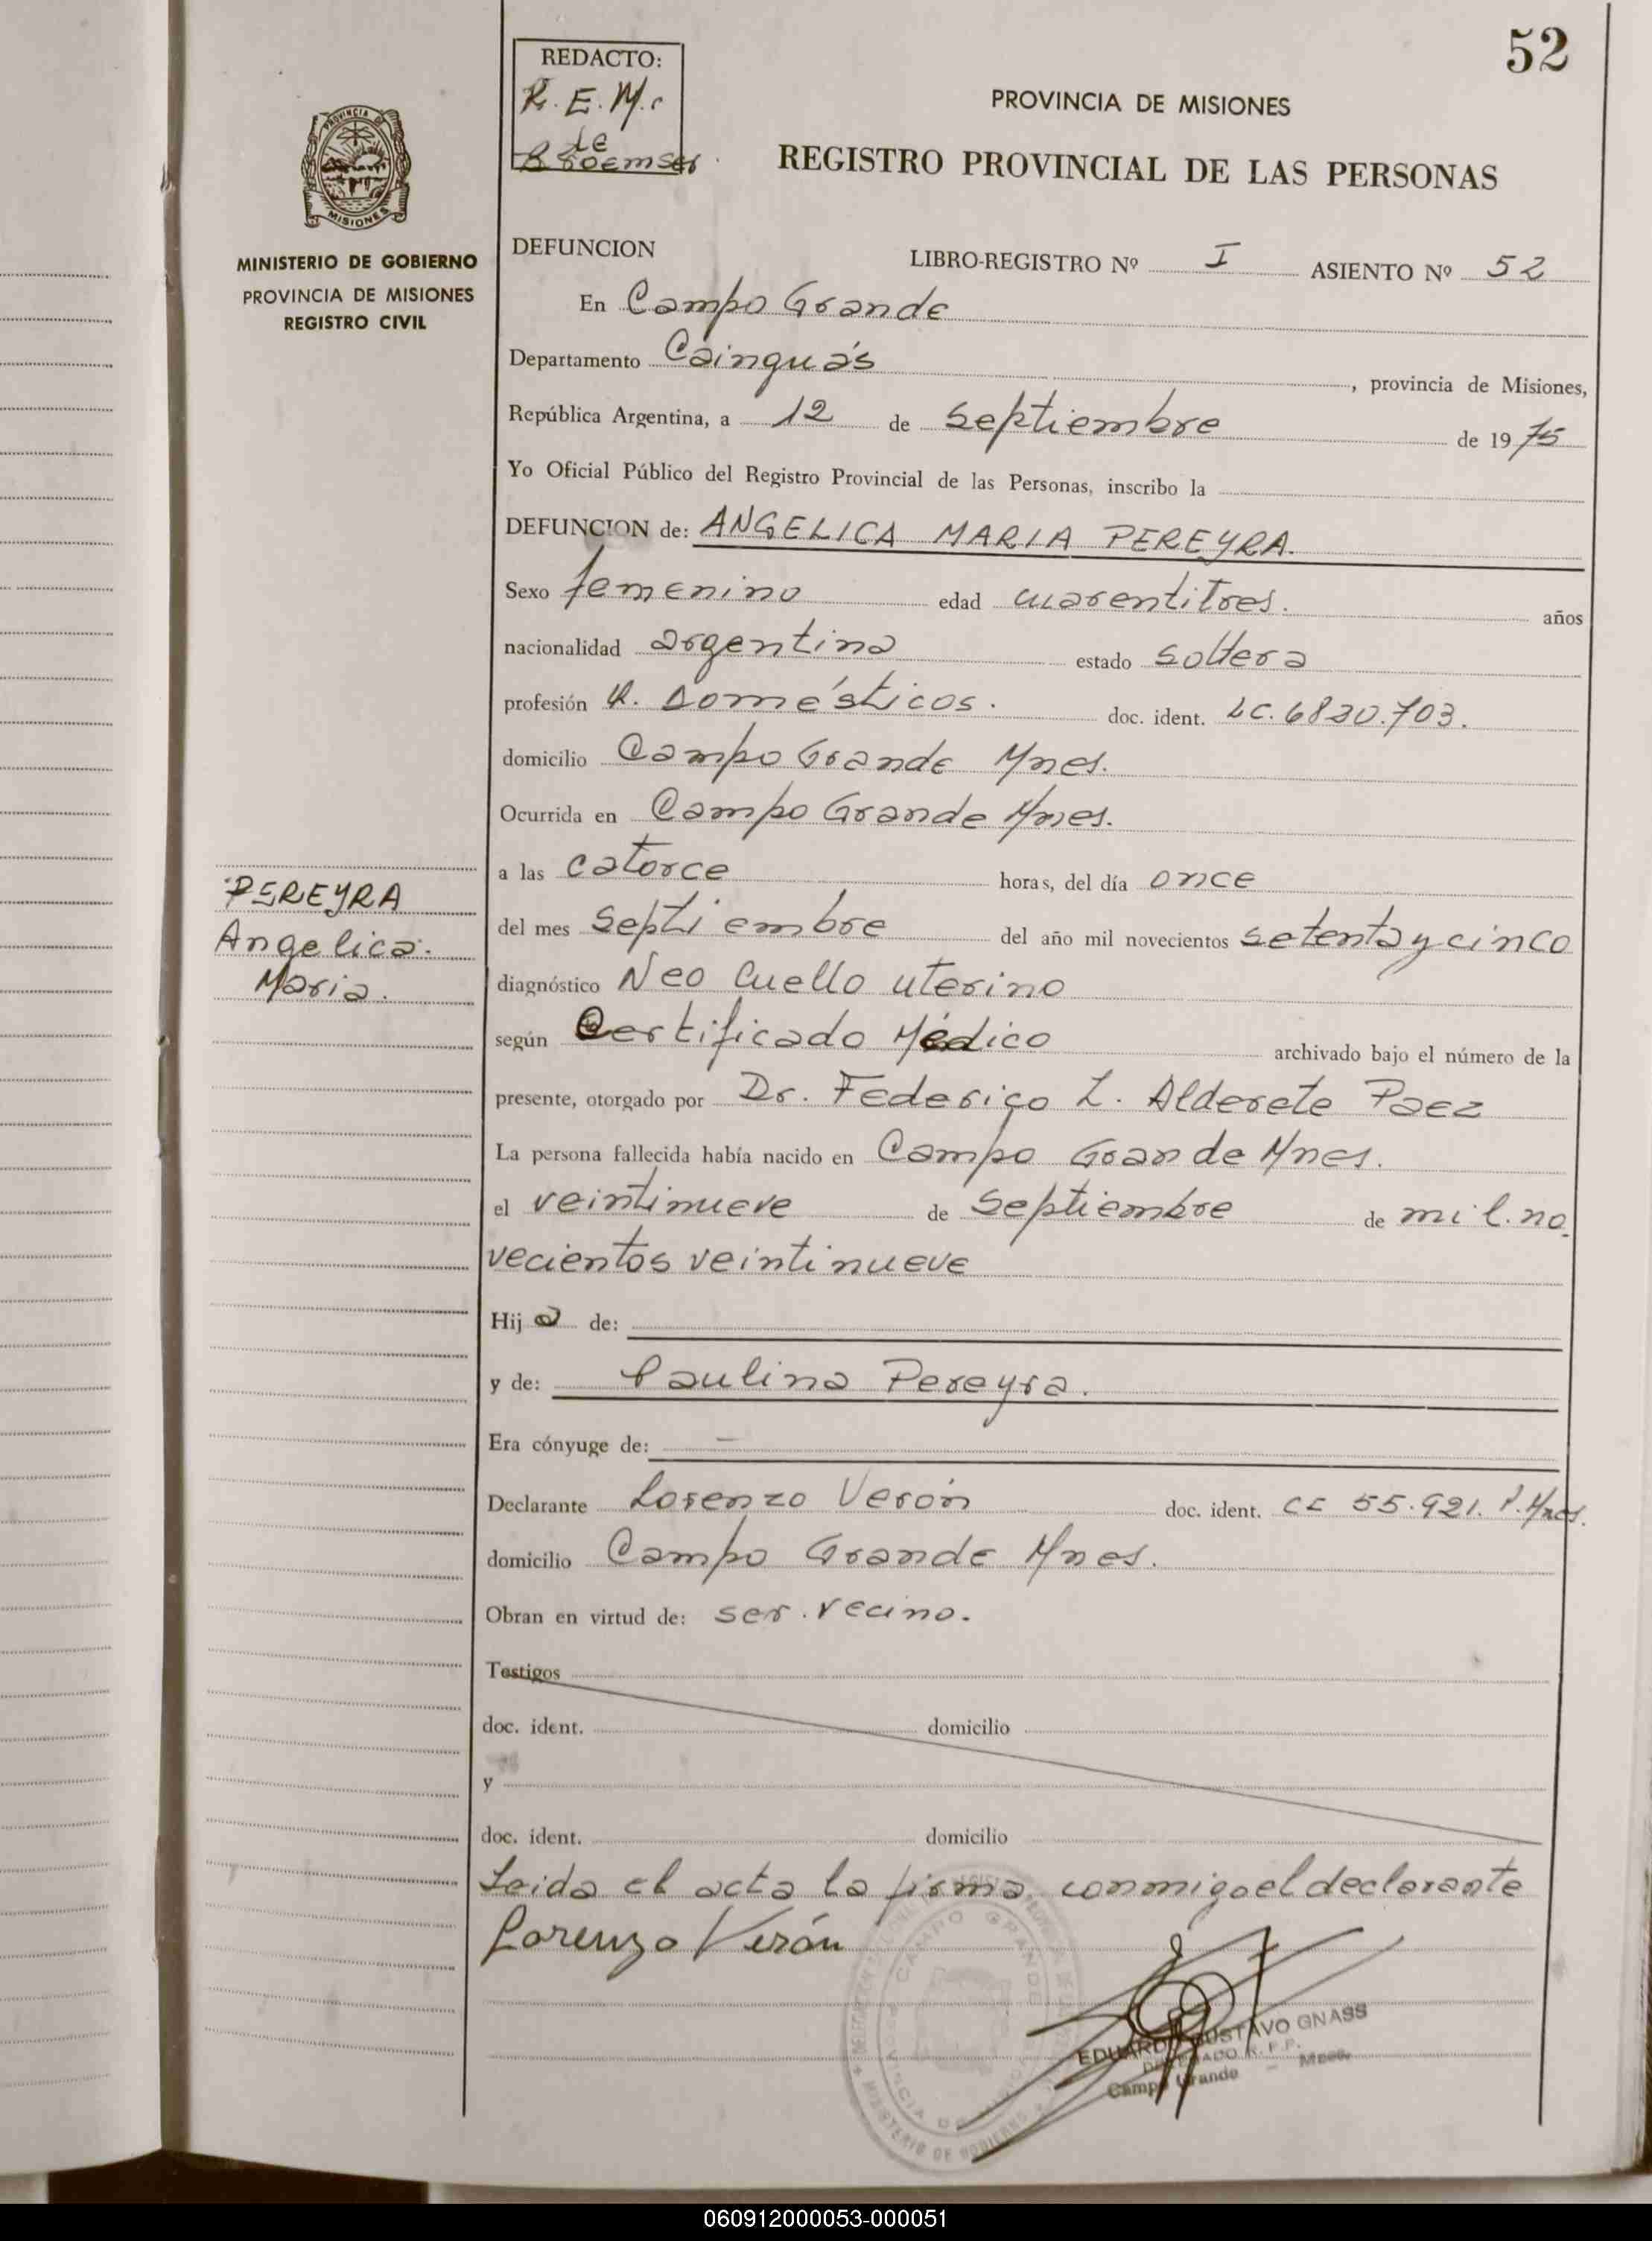 52
REDACTO:
R. E. M. c
te
PROVINCIA DE MISIONES
REGISTRO PROVINCIAL DE LAS PERSONAS
PROVINCIA DE
MISIONES
MINISTERIO DE GOBIERNO
PROVINCIA DE MISIONES
REGISTRO CIVIL
DEFUNCION LIBRO-REGISTRO Nº I ASIENTO Nº 52
En Campo Grande
Departamento Cainguás, provincia de Misiones,
República Argentina, a 12 de septiembre de 1975
Yo Oficial Público del Registro Provincial de las Personas, inscribo la
DEFUNCION de: ANGELICA MARIA PEREYRA.
Sexo femenino edad cuarentitres. años
nacionalidad argentina estado soltera
profesión Q. Domésticos. doc. ident. LC. 6830.703.
domicilio Campo Grande Mnes.
Ocurrida en Campo Grande Mnes.
a las catorce horas, del día once
PEREYRA
Angelica.
Maria.
del mes septiembre del año mil novecientos setenta y cinco
diagnóstico Neo Cuello uterino
según Certificado Médico archivado bajo el número de la
presente, otorgado por Dr. Federico L. Alderete Paez
La persona fallecida había nacido en Campo Grande Mnes.
el veintinueve de septiembre de mil.no
vecientos veintinueve
Hija de:
y de: Paulina Pereyra.
Era cónyuge de: —
Declarante Lorenzo Verón doc. ident. CE 55.921. P. Mnes.
domicilio Campo Grande Mnes.
Obran en virtud de: ser. vecino.
Testigos
doc. ident. domicilio
y
doc. ident. domicilio
Leida el acta la firma conmigo el declarante
Lorenzo Verón
CAMPO GRANDE
MINISTERIO DE GOBIERNO
EDUARDO GUSTAVO GNASS
DELEGADO R. P. P.
Campo Grande - Mnes.
060912000053-000051